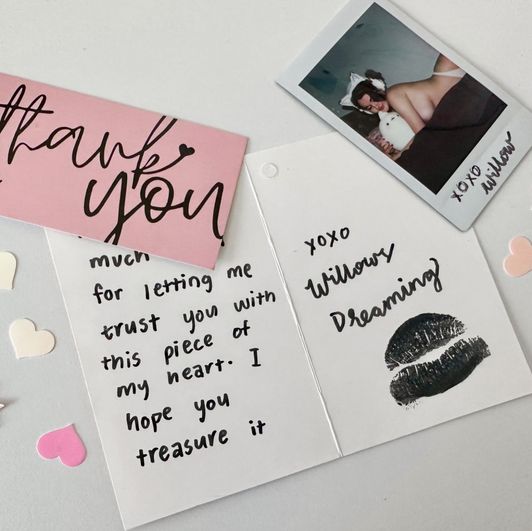 thank
you
much
for letting me
trust you with
this piece of
my heart. I
hope you
treasure it
xoxo
Willows
Dreaming
xoxo
willow